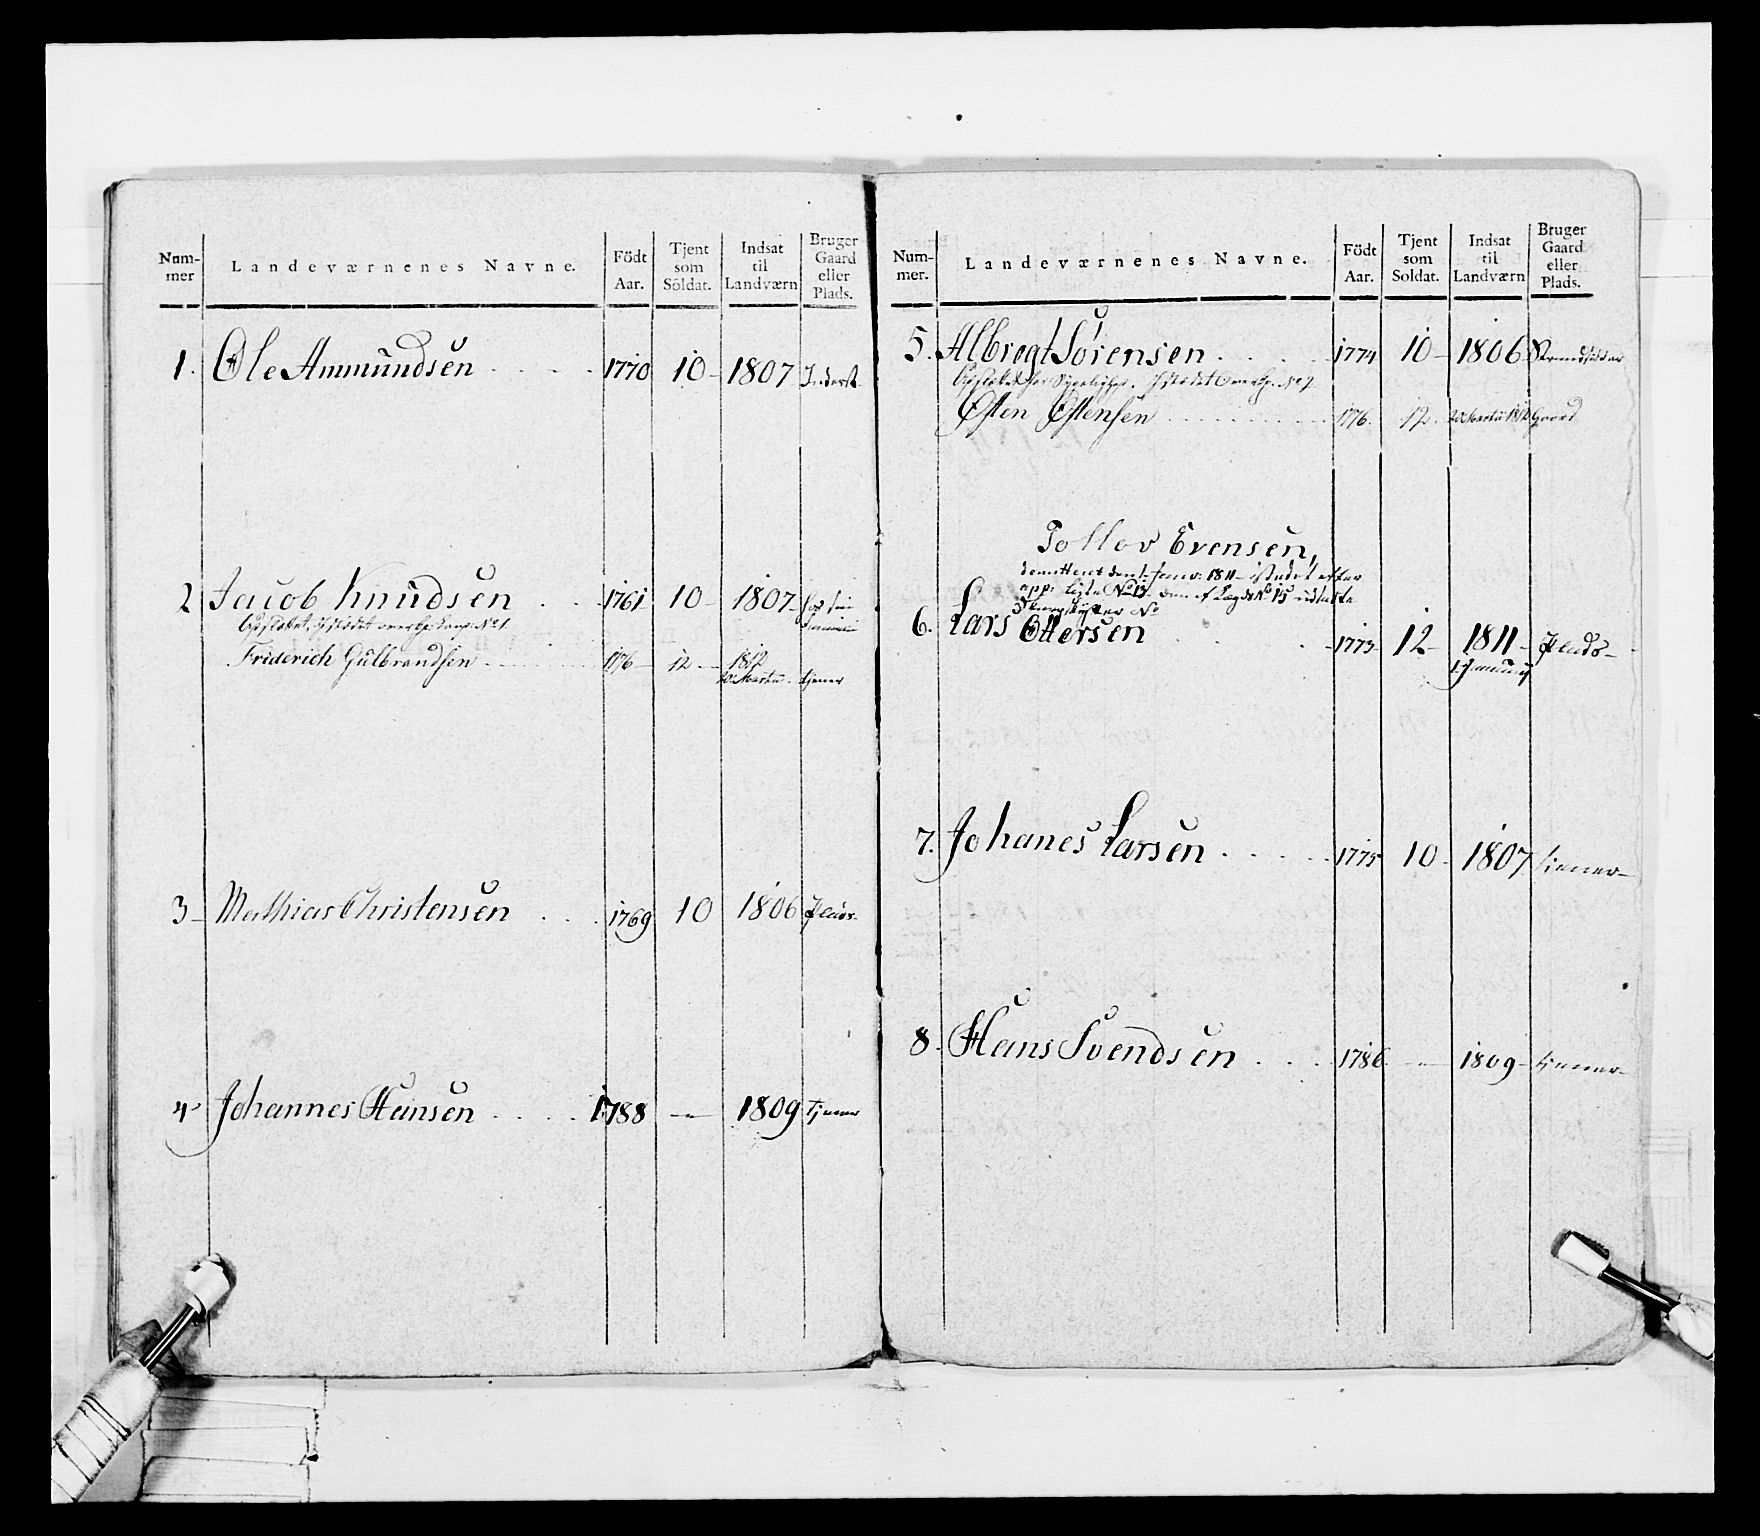 Num-
mer
Landeværnenes Navne.
Födt
Aar.
Tjent
som
Soldat.
Indsat
til
Landværn
Bruger
Gaard
eller
Plads.
1. Ole Ammundsen 1770 10- 1807 Inderst
2 Jacob Knudsen 1761 10- 1807-
Friderich Gulbrandsen 1776 12 1812
tjener
3- Mathias Christensen 1769 10 1806 Plads-
4 Johannes Hansen 1788 -"- 1809 tjener
Num-
mer.
Landeværnenes Navne.
Födt
Aar.
Tjent
som
Soldat.
Indsat
til
Landværn
Bruger
Gaard
eller
Plads.
5. Albregt Sörensen 1774 10- 1806 Strandsidder
Østen Østensen 1776. 12. 1812 Gaard
Tollov Evensen,
6. Lars Ottersen 1773 12- 1811- Plads-
1. Januarij
7. Johanes Larsen 1775 10- 1807 tiener-
8. Hans Svendsen 1786 -"- 1809- tiener-